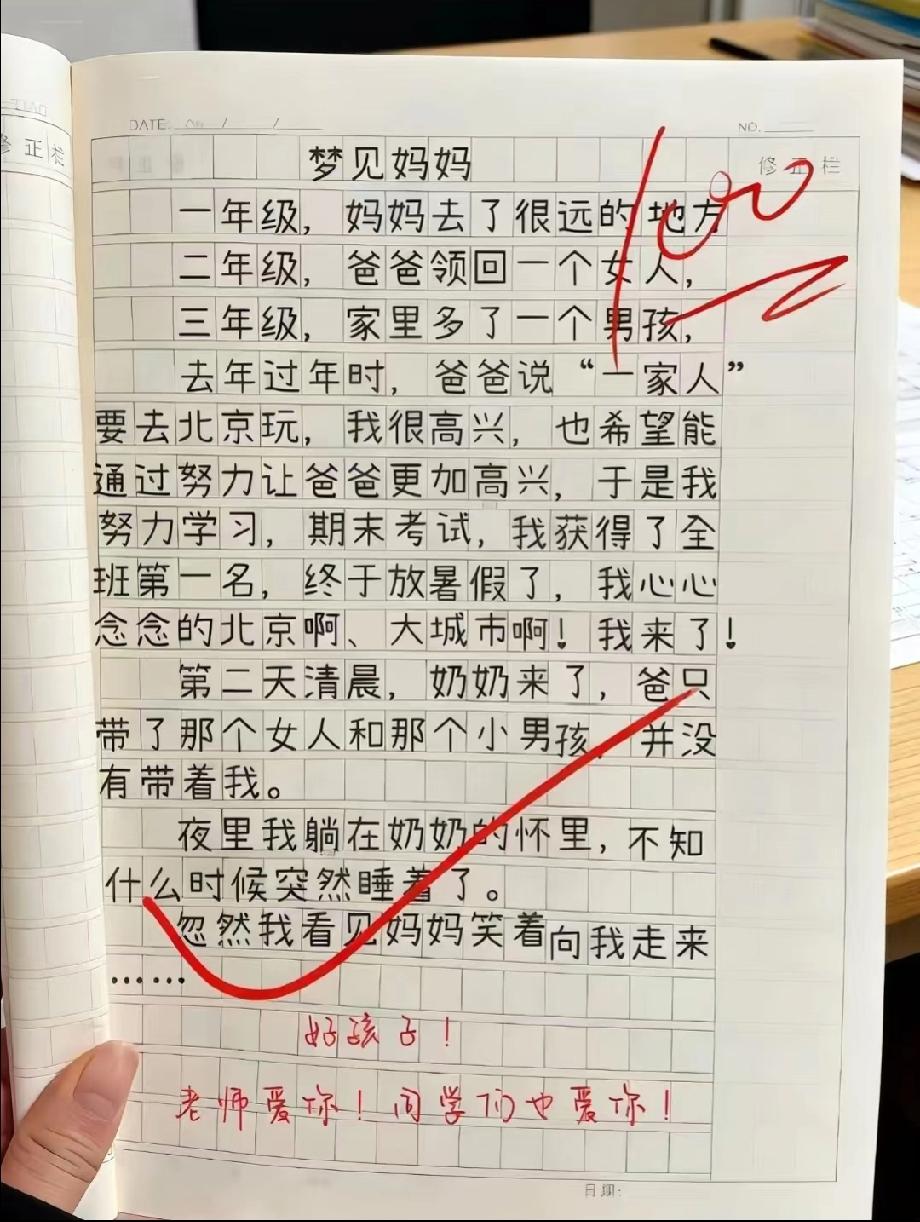 DATE: / /
NO.
修正栏
修正栏
梦见妈妈
100
一年级，妈妈去了很远的地方
二年级，爸爸领回一个女人，
三年级，家里多了一个男孩，
去年过年时，爸爸说“一家人”
要去北京玩，我很高兴，也希望能
通过努力让爸爸更加高兴，于是我
努力学习，期末考试，我获得了全
班第一名，终于放暑假了，我心心
念念的北京啊、大城市啊！我来了！
第二天清晨，奶奶来了，爸只
带了那个女人和那个小男孩，并没
有带着我。
夜里我躺在奶奶的怀里，不知
什么时候突然睡着了。
忽然我看见妈妈笑着向我走来
……
好孩子！
老师爱你！同学们也爱你！
日期：